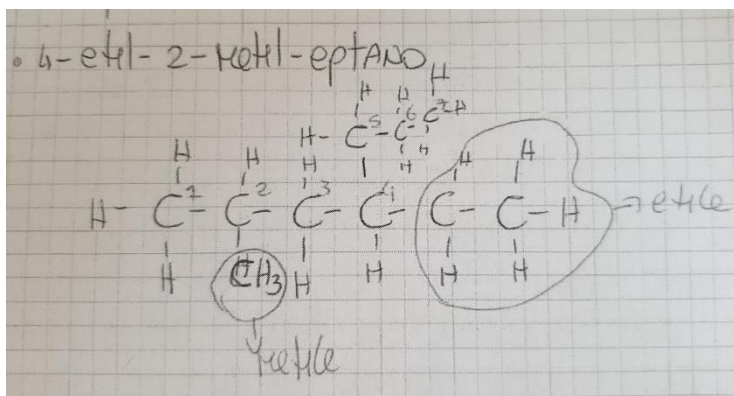 • 4-etil-2-metil-eptANO
H
H H C7 H
H- C5 - C6
H H H H H H H
H- C1 - C2 - C3 - C4 - C - C - H → etile
H CH3 H H H H
metile